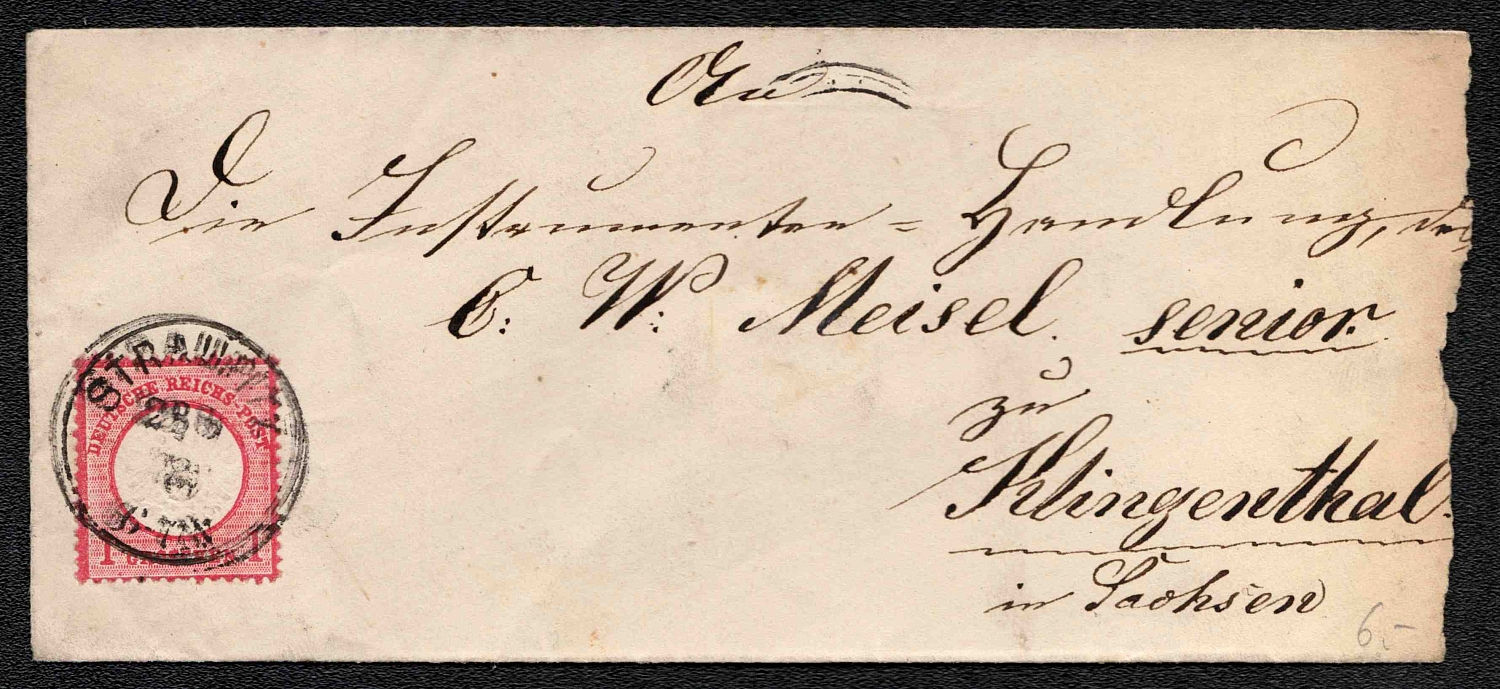 An
Die Instrumenten = Handlung, des
C. W. Meisel. senior.
zu
Klingenthal.
in Sachsen
DEUTSCHE REICHS-POST
1 1
6.-